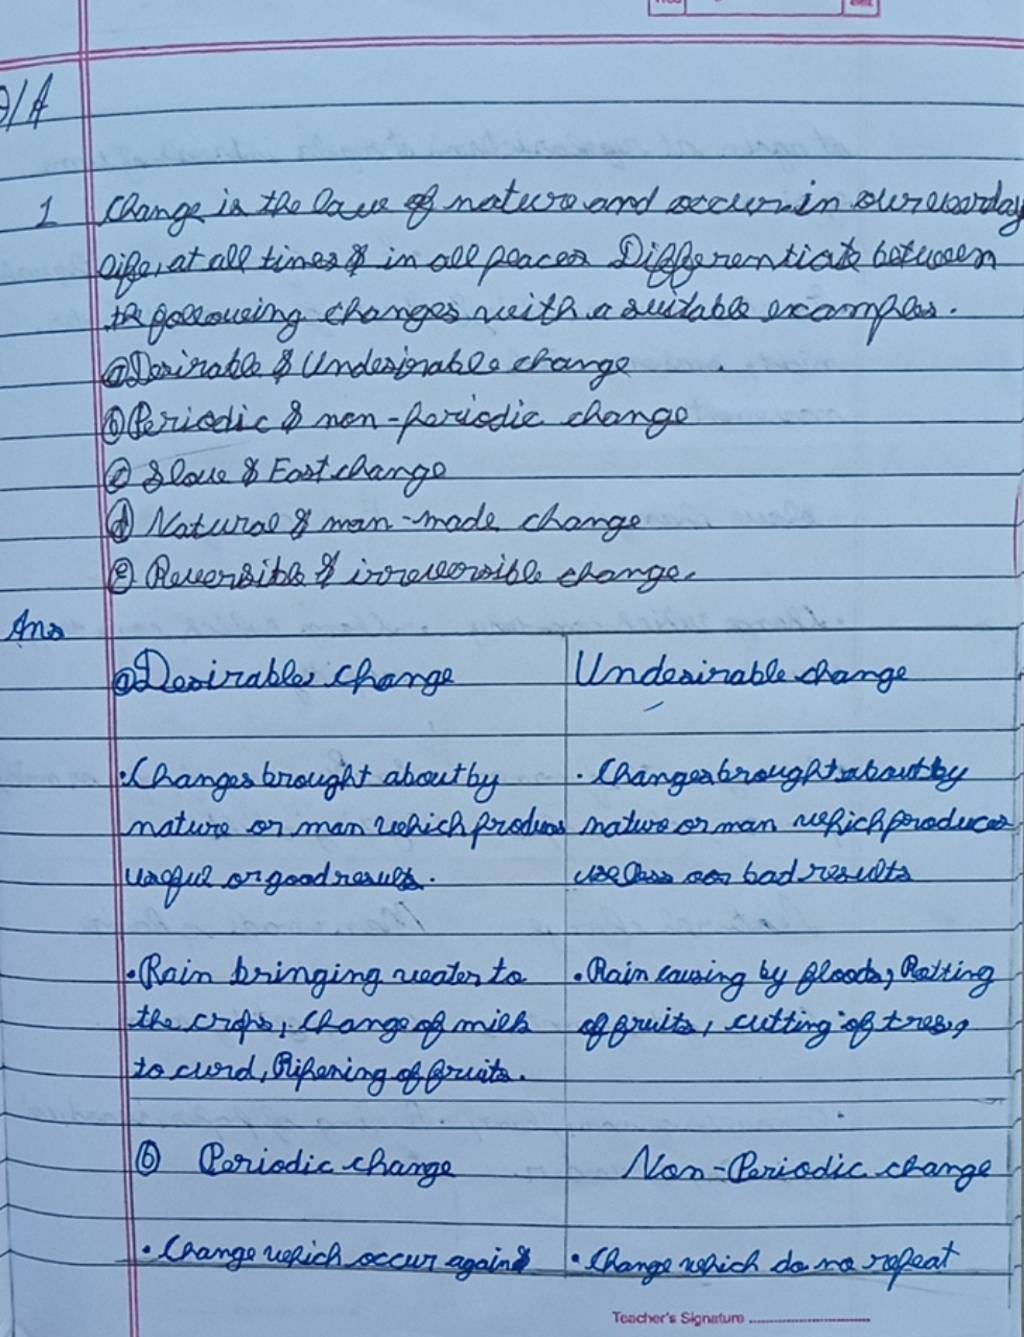 Q/A
1 Change is the law of nature and occur in our everyday
life, at all times & in all places Differentiate between
the following changes with a suitable examples.
(a) Desirable & Undesirable change
(b) Periodic & non-periodic change
(c) Slow & Fast change
(d) Natural & man-made change
(e) Reversible & irreversible change.
Ans
(a) Desirable change Undesirable change
• Changes brought about by • Changes brought about by
nature or man which produces nature or man which produces
useful or good results. useless or bad results
• Rain bringing water to • Rain causing by floods, Rotting
the crops, Change of milk of fruits, cutting of tress,
to curd, Ripening of fruits.
(b) Periodic change Non-Periodic change
• Change which occur again & • Change which do no repeat
Teacher's Signature